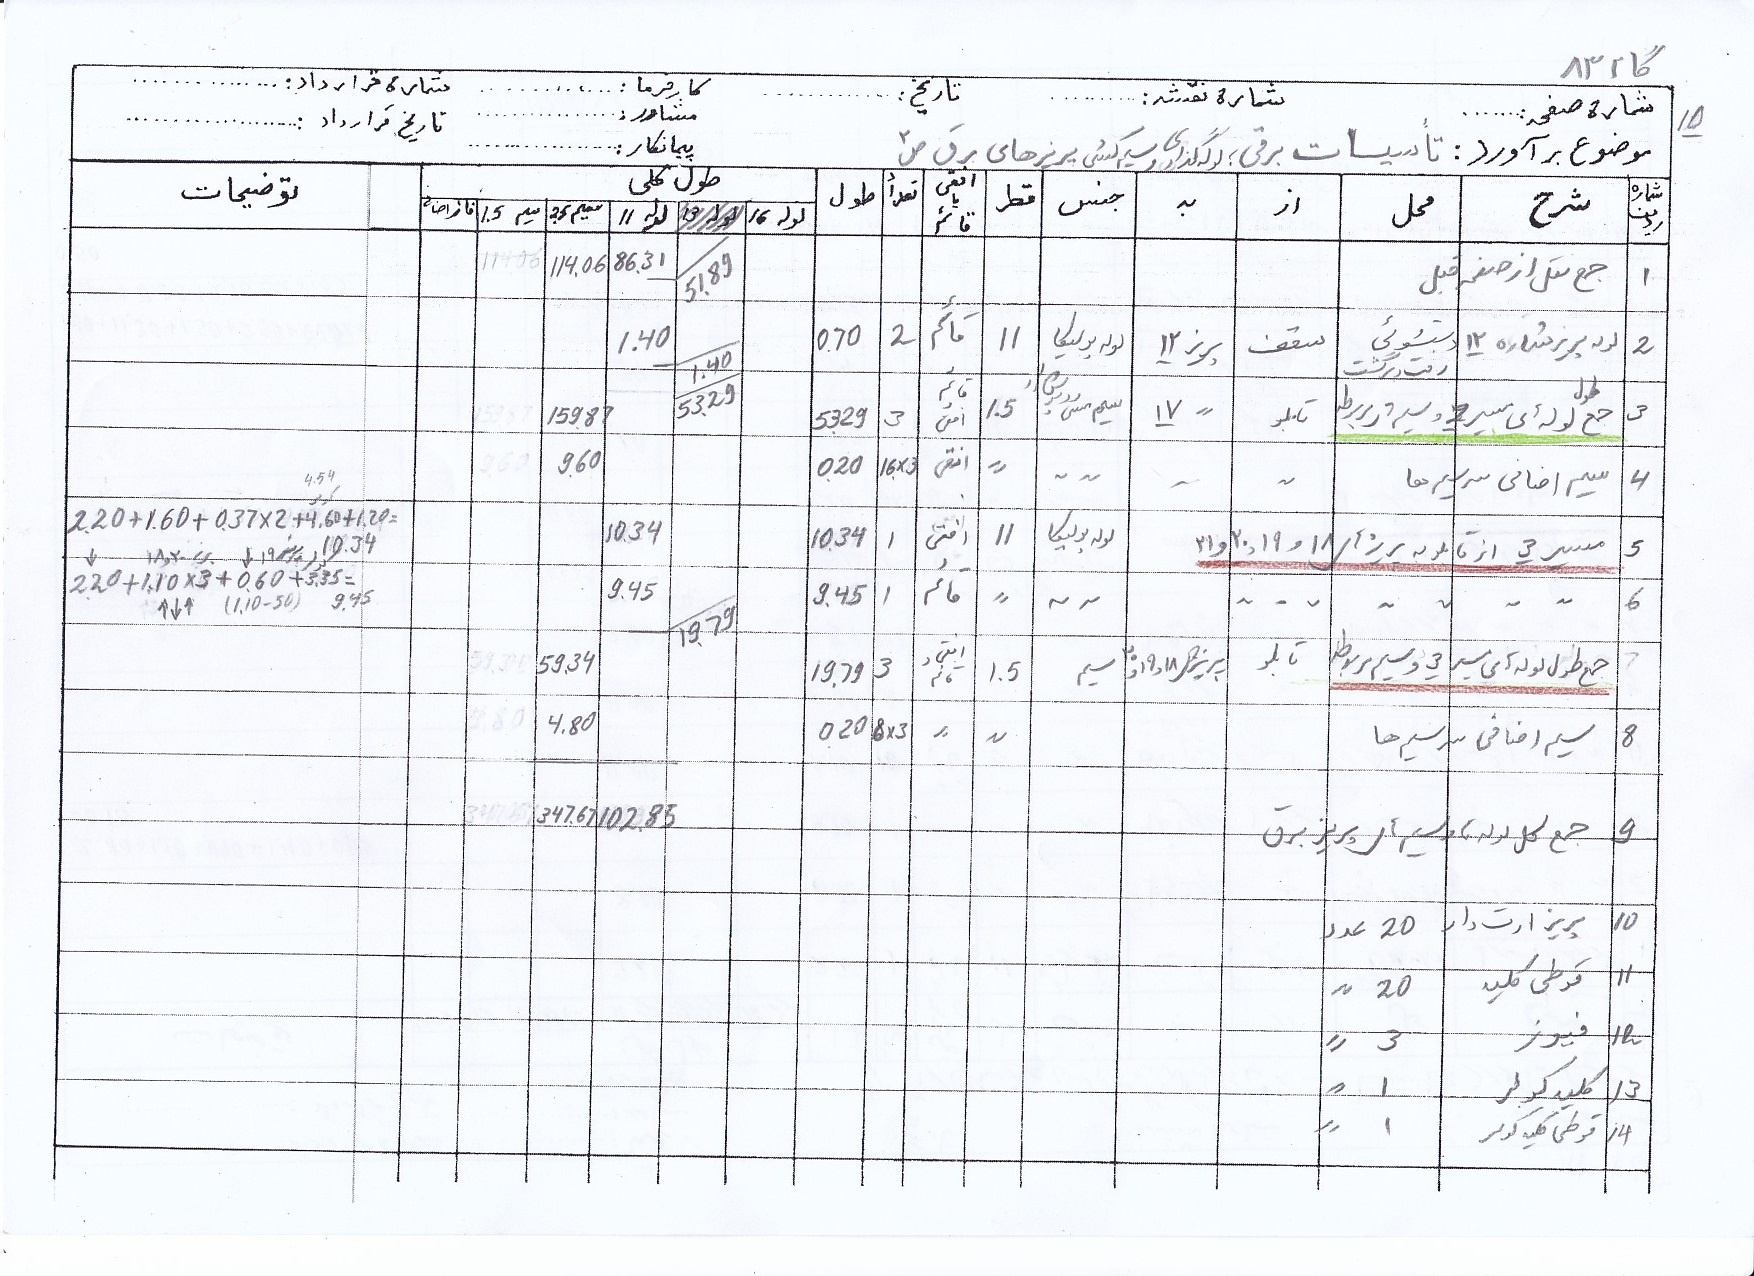 شماره صفحه: ........ شماره نقشه: ........ تاریخ: ........ کارفرما: ........ شماره قرارداد: ........
15
مشاور: ........ تاریخ قرارداد: ........
موضوع برآورد: تأسیسات برقی، لوله‌گذاری و سیم‌کشی پریزهای برق پیمانکار: ........
شماره ردیف شرح محل از به جنس قطر افقی یا قائم تعداد طول طول کلی توضیحات
لوله 16 لوله 11 سیم 2.5 سیم 1.5
1 جمع نقل از صفحه قبل 51.89 86.31 114.06 114.06
2 لوله پریز شماره ۱۲ دستشوئی سقف پریز ۱۲ لوله پولیکا 11 قائم 2 0.70 1.40 1.40
رفت و برگشت
3 جمع طول لوله‌های مسیر 2 و سیم مربوطه تابلو " ۱۷ سیم 1.5 قائم افقی 3 53.29 53.29 159.87 159.87
4 سیم اضافی سرسیم‌ها " " " " " افقی 16×3 0.20 9.60 9.60
4.54
5 مسیر 3 از تابلو به پریزهای ۱۸ و ۱۹ و ۲۰ و ۲۱ لوله پولیکا 11 افقی 1 10.34 10.34 2.20+1.60+0.37×2+4.60+1.20=
10.34
6 " " " " " " " " " " قائم 1 9.45 19.79 9.45 2.20+1.10×3+0.60+3.35=
(1.10-50) 9.45
7 جمع طول لوله‌های مسیر 3 و سیم مربوطه تابلو سیم 1.5 افقی و قائم 3 19.79 59.34 59.34
8 سیم اضافی سرسیم‌ها " " 8×3 0.20 4.80 4.80
9 جمع کل لوله‌ها و سیم‌های پریز برق 102.85 347.67 347.67
10 پریز ارت دار 20 عدد
11 قوطی کلید 20 "
12 فیوز 3 "
13 کلید کولر 1 "
14 قوطی کلید کولر 1 "